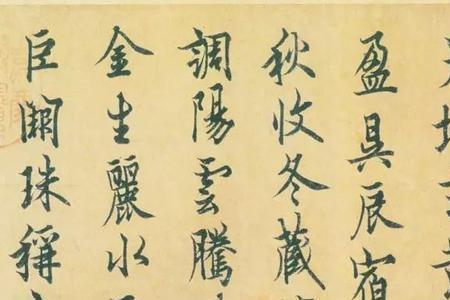 盈昃辰宿
秋收冬藏
調陽雲騰
金生麗水
巨闕珠稱